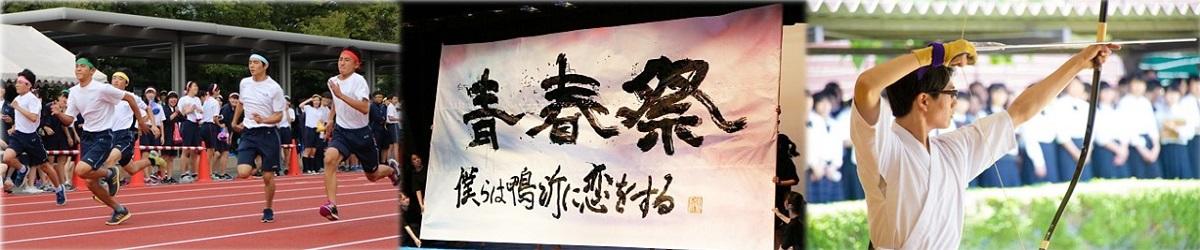 青春祭
僕らは鴨沂に恋をする